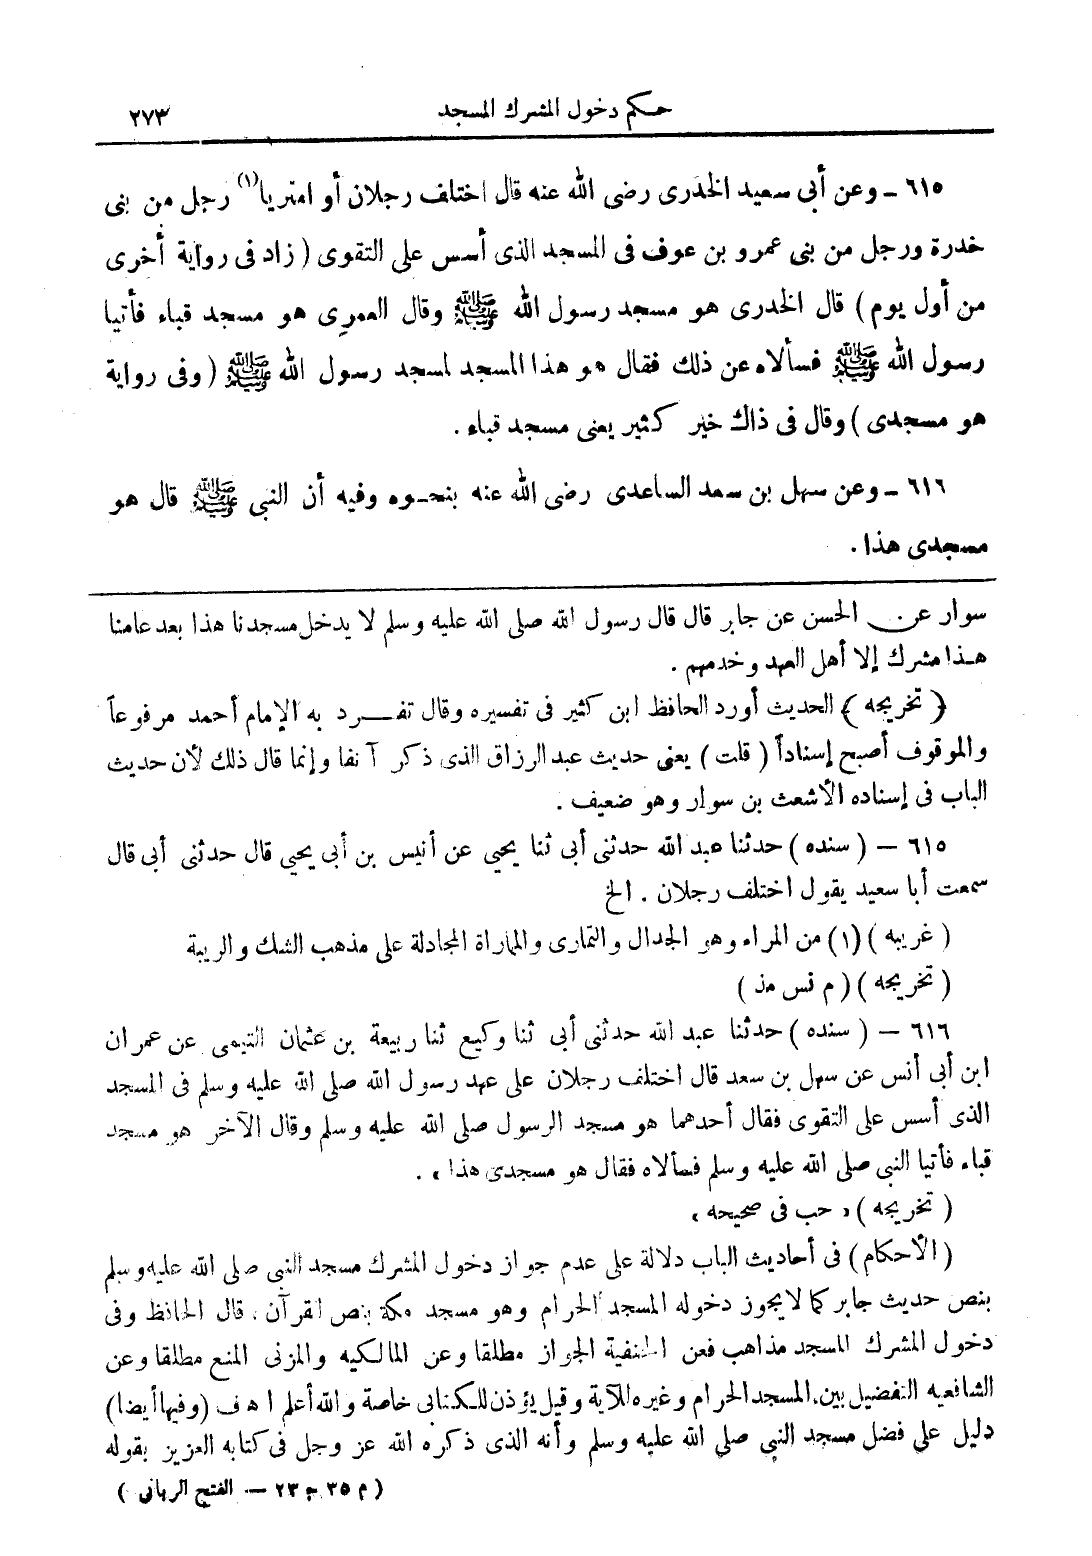 حكم دخول المشرك المسجد ٢٧٣
٦١٥ - وعن أبى سعيد الخدرى رضى الله عنه قال اختلف رجلان أو امتريا(١) رجل من بنى
خدرة ورجل من بنى عمرو بن عوف فى المسجد الذى أسس على التقوى ( زاد فى رواية أخرى
من أول يوم ) قال الخدرى هو مسجد رسول الله ﷺ وقال العمرى هو مسجد قباء فأتيا
رسول الله ﷺ فسألاه عن ذلك فقال هو هذا المسجد لمسجد رسول الله ﷺ ( وفى رواية
هو مسجدى ) وقال فى ذاك خير كثير يعنى مسجد قباء .
٦١٦ - وعن سهل بن سعد الساعدى رضى الله عنه بنحوه وفيه أن النبى ﷺ قال هو
مسجدى هذا .
سوار عن الحسن عن جابر قال قال رسول الله صلى الله عليه وسلم لا يدخل مسجدنا هذا بعد عامنا
هذا مشرك إلا أهل العهد وخدمهم .
﴿ تخريجه ﴾ الحديث أورد الحافظ ابن كثير فى تفسيره وقال تفرد به الإمام أحمد مرفوعاً
والموقوف أصبح إسناداً ( قلت ) يعنى حديث عبد الرزاق الذى ذكر آنفا وإنما قال ذلك لأن حديث
الباب فى إسناده الأشعث بن سوار وهو ضعيف .
٦١٥ — ( سنده ) حدثنا عبد الله حدثنى أبى ثنا يحيى عن أنيس بن أبى يحيى قال حدثنى أبى قال
سمعت أبا سعيد يقول اختلف رجلان . الخ
( غريبه ) (١) من المراء وهو الجدال والتمارى والماراة المجادلة على مذهب الشك والريبة
( تخريجه ) ( م نس مذ )
٦١٦ — ( سنده ) حدثنا عبد الله حدثنى أبى ثنا وكيع ثنا ربيعة بن عثمان التيمى عن عمران
ابن أبى أنس عن سهل بن سعد قال اختلف رجلان على عهد رسول الله صلى الله عليه وسلم فى المسجد
الذى أسس على التقوى فقال أحدهما هو مسجد الرسول صلى الله عليه وسلم وقال الآخر هو مسجد
قباء فأتيا النبى صلى الله عليه وسلم فسألاه فقال هو مسجدى هذا ، .
( تخريجه ) ، حب فى صحيحه ،
( الأحكام ) فى أحاديث الباب دلالة على عدم جواز دخول المشرك مسجد النبى صلى الله عليه وسلم
بنص حديث جابر كما لا يجوز دخوله المسجد الحرام وهو مسجد مكة بنص القرآن . قال الحافظ وفى
دخول المشرك المسجد مذاهب فعن الحنفية الجواز مطلقا وعن المالكيه والمزنى المنع مطلقا وعن
الشافعيه التفضيل بين المسجد الحرام وغيره للآية وقيل يؤذن للكتابى خاصة والله أعلم اهـ ف (وفيها أيضا)
دليل على فضل مسجد النبى صلى الله عليه وسلم وأنه الذى ذكره الله عز وجل فى كتابه العزيز بقوله
( م ٣٥ ج ٢٣ — الفتح الربانى )